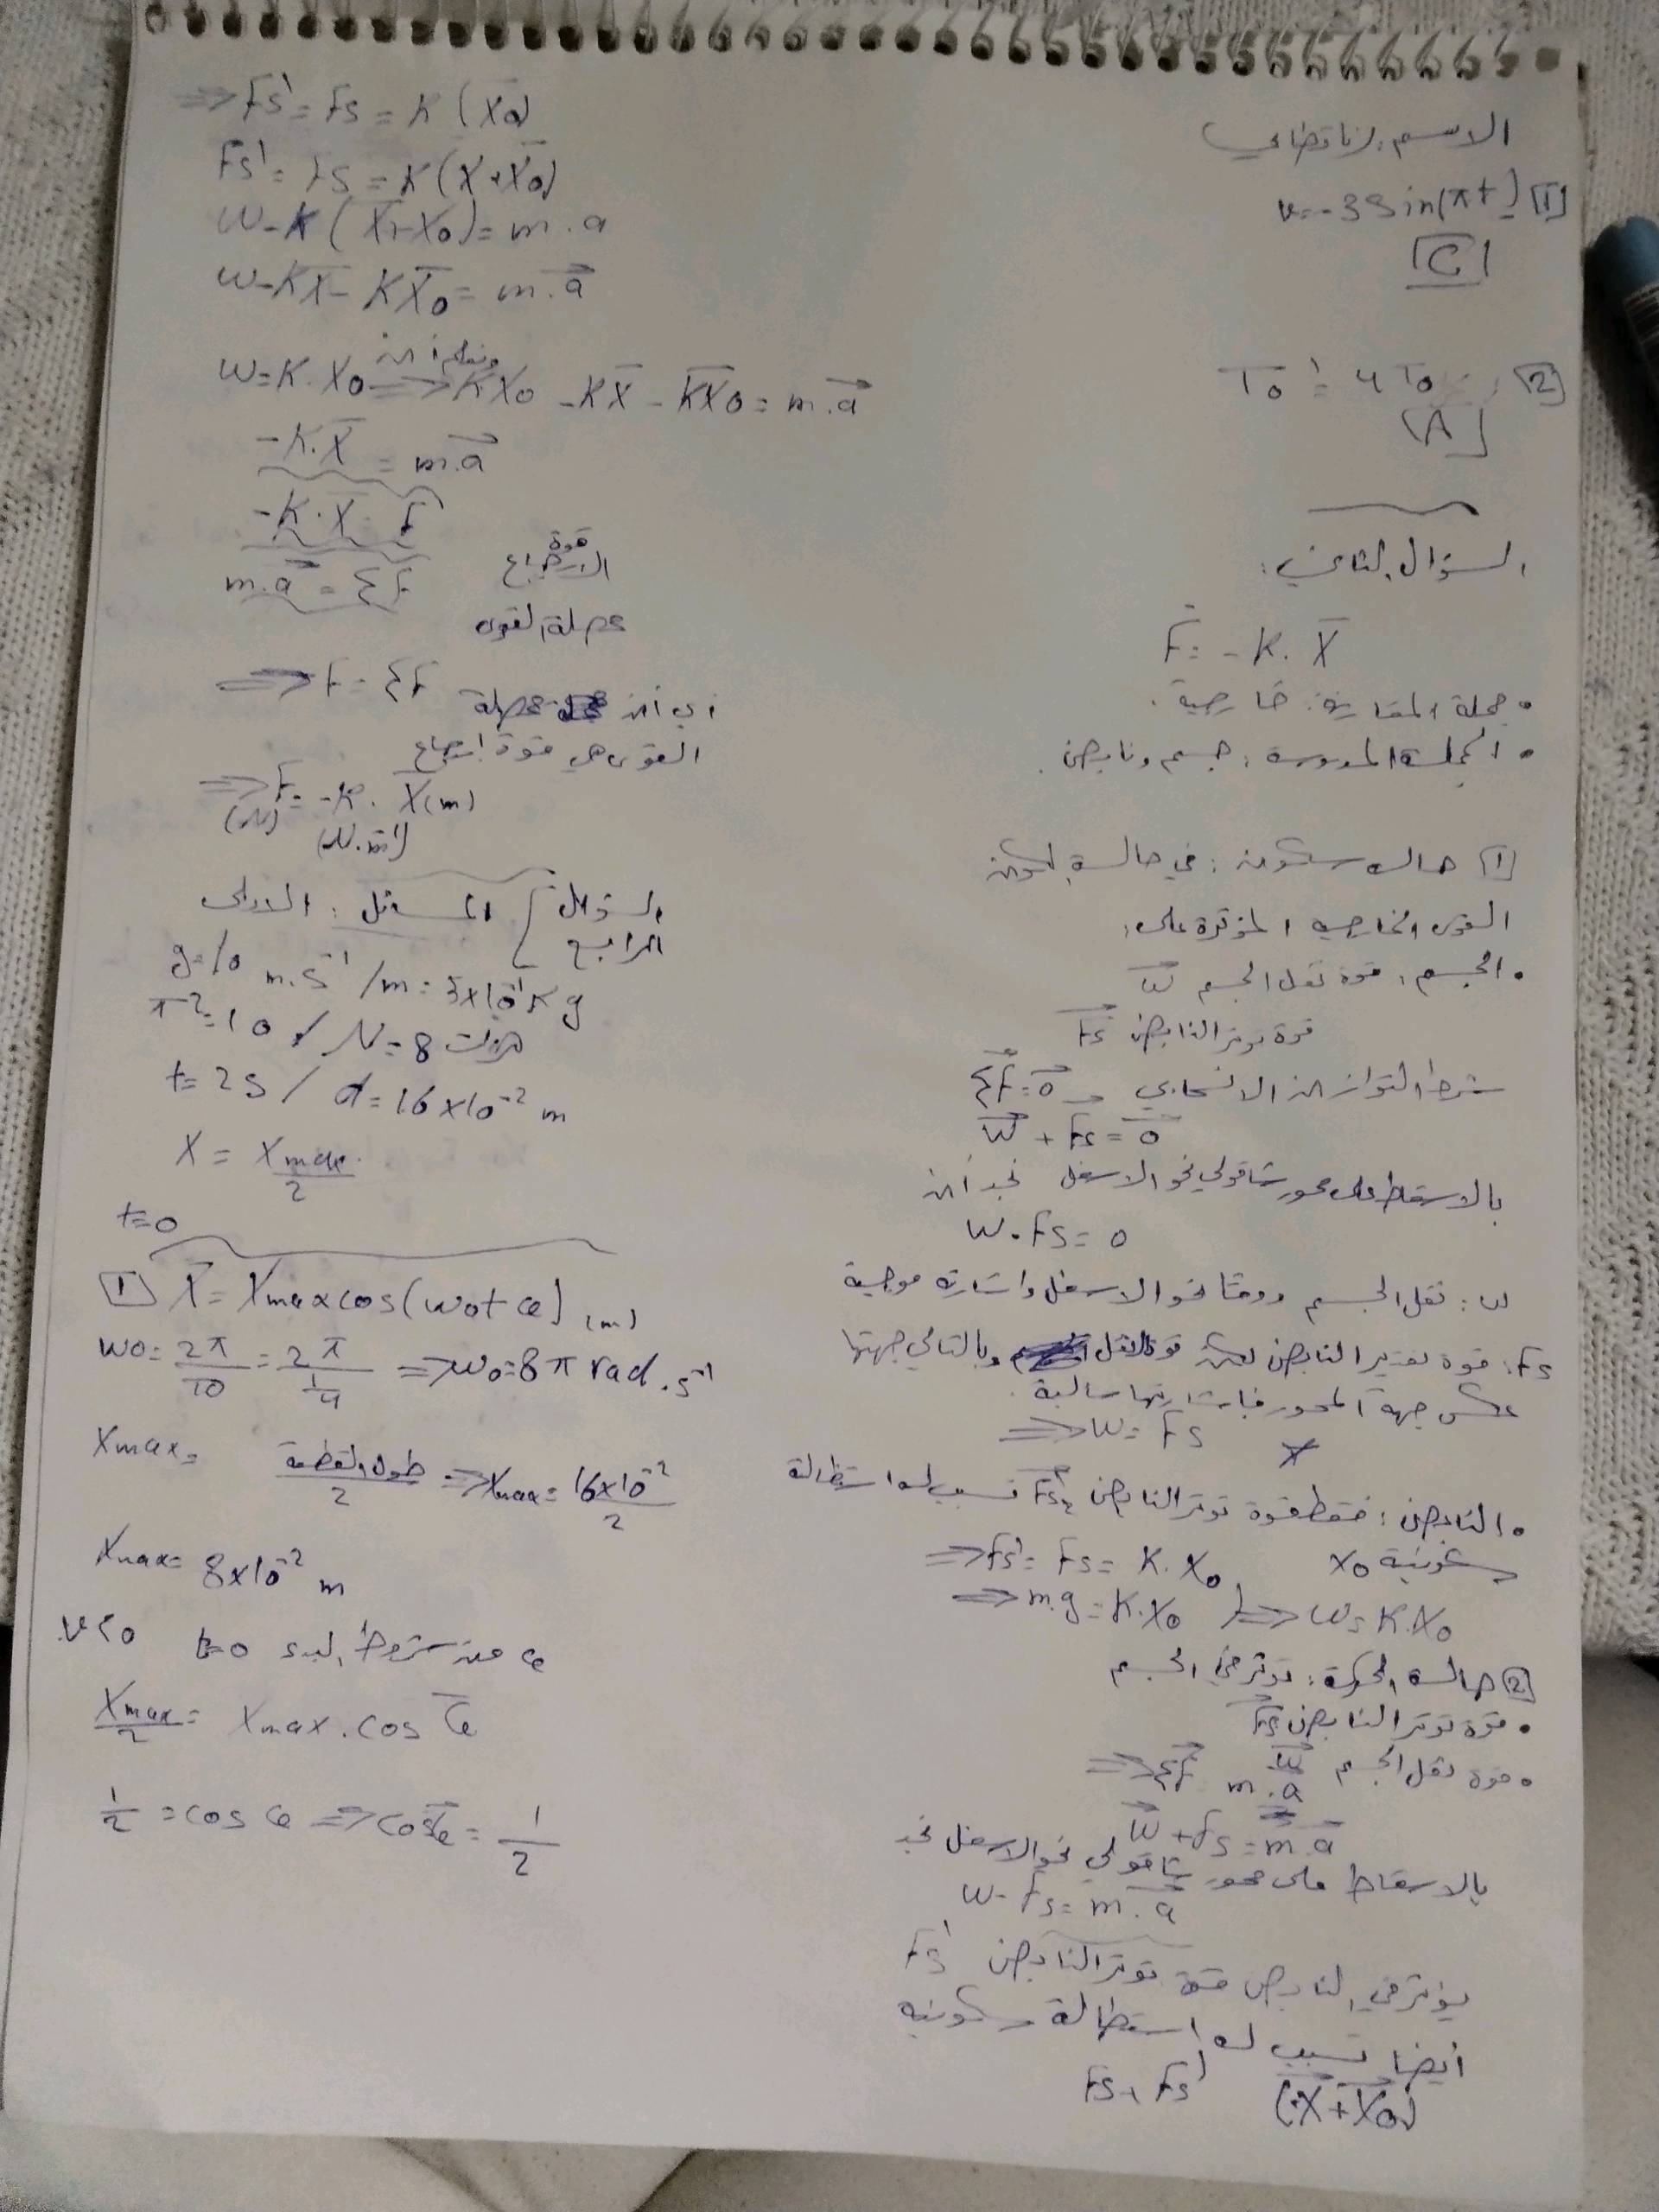 الاسم: رنا قطاي
v=-3Sin(πt) [1]
[C]
T0' = 4T0 [2]
[A]
السؤال الثاني:
F = -K. X
• جملة المقارنة: خارجية.
• الجملة المدروسة: جسم ونابض.
[1] حالة سكون: في حالة السكون
القوى الخارجية المؤثرة على:
• الجسم: قوة ثقل الجسم W
قوة توتر النابض Fs
شرط التوازن الانسحابي ΣF=0
W + Fs = 0
بالاسقاط على محور شاقولي نحو الاسفل نجد أن
W - Fs = 0
W: ثقل الجسم دوما نحو الاسفل واشارته موجبة
Fs: قوة توتر النابض عكس قوة الثقل وبالتالي جهتها
عكس جهة المحور فإشارتها سالبة.
=> W = Fs
• النابض: فقط قوة توتر النابض Fs' تسبب له استطالة
سكونية x0
=> Fs' = Fs = K. X0
=> m.g = K.X0 => W = K.X0
[2] حالة الحركة: تؤثر في الجسم
• قوة توتر النابض Fs
• قوة ثقل الجسم W
=> ΣF m.a
W + Fs = m.a
بالاسقاط على محور شاقولي نحو الاسفل نجد
W - Fs = m.a
يؤثر في النابض قوة توتر النابض Fs'
أيضا تسبب له استطالة سكونية
(X+X0) Fs, Fs'
=> Fs' = Fs = K (X0)
Fs' = Fs = K(X+X0)
W-K(X+X0) = m.a
W-KX-KX0 = m.a
W=K.X0 ونعلم أن => KX0 -KX - KX0 = m.a
-K.X = m.a
-K.X = F قوة الارجاع
m.a = ΣF محصلة القوى
=> F = ΣF أي أن محصلة
القوى هي قوة إرجاع
=> F = -K. X(m)
(N) (N.m-1)
السؤال الرابع [ المسائل: الاولى
g=10 m.s-1 / m = 5x10-1 Kg
π2=10 / N=8 هزات
t=2s / d=16x10-2 m
X = Xmax/2
t=0
[1] X = Xmax cos(w0t φ) (m)
w0 = 2π/T0 = 2π/(1/4) => w0=8π rad.s-1
Xmax = طول القطعة/2 => Xmax = 16x10-2/2
Xmax = 8x10-2 m
φ من شروط البدء t=0 v<0
Xmax/2 = Xmax.cos φ
1/2 = cos φ => cosφ = 1/2